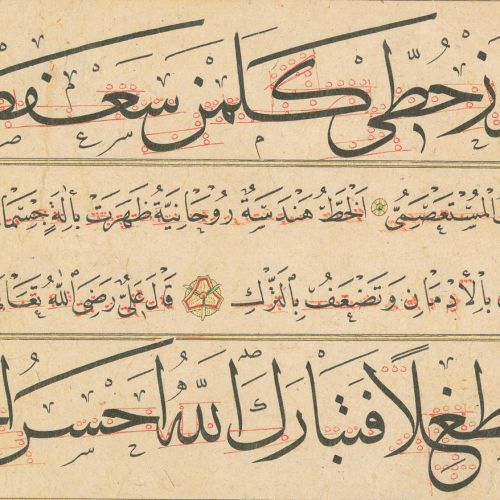 حُطّي كَلَمَنْ سَعَفَص
المُسْتَعْصَمِيّ الخَطُّ هَنْدَسَةٌ رُوحَانِيَّةٌ ظَهَرَتْ بِآلَةٍ
بِالأدْمَانِ وَتَضْعَفُ بِالتَّرْكِ قَالَ عَلِيٌّ رَضِيَ اللهُ تَعَالَى
فَتَبَارَكَ اللهُ اَحْسَنُ